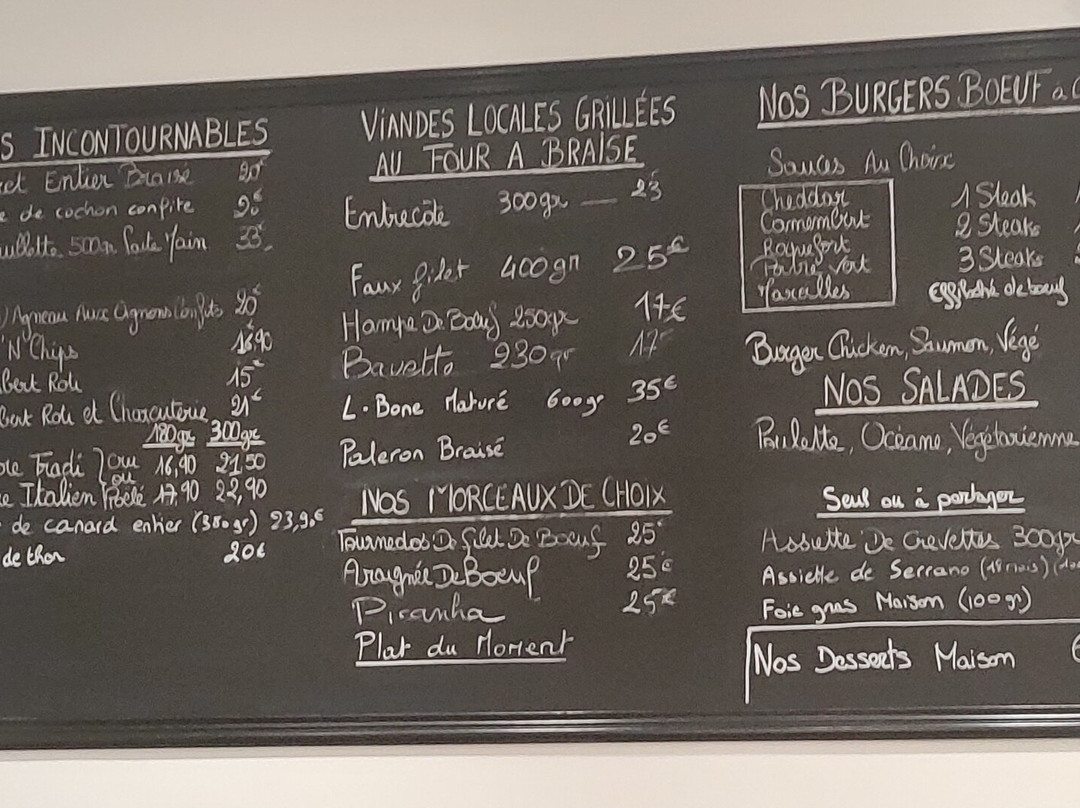 S INCONTOURNABLES
et Entier Braisé 20€
e de cochon confite
500gr Faite Main 33€
Agneau Aux Oignons Confits 20€
'N' Chips 16,90
bert Roti 15€
bert Roti et Charcuterie 21€
180gr 300gr
Tradi } Cru 16,90 21,50
ou
e Italien Poelé 17,90 22,90
de canard entier (380gr) 23,90€
de thon 20€
VIANDES LOCALES GRILLÉES
AU FOUR A BRAISE
Entrecôte 300gr — 23
Faux filet 400gr 25€
Hampe De Boeuf 250gr 17€
Bavette 230gr 17
L.Bone Maturé 600gr 35€
Paleron Braisé 20€
NOS MORCEAUX DE CHOIX
Tournedos De Filet De Boeuf 25€
Araignée De Boeuf 25€
Piranha 25€
Plat du Moment
NOS BURGERS BOEUF à
Sauces Au Choix
Cheddar
Camembert
Roquefort
Poivre Vert
Maroilles
1 Steak
2 Steaks
3 Steaks
Effiloché de boeuf
Burger Chicken, Saumon, Végé
NOS SALADES
Poulette, Océane, Végétarienne
Seul ou à partager
Assiette De Crevettes 300gr
Assiette de Serrano (18 mois)
Foie gras Maison (100gr)
Nos Desserts Maison